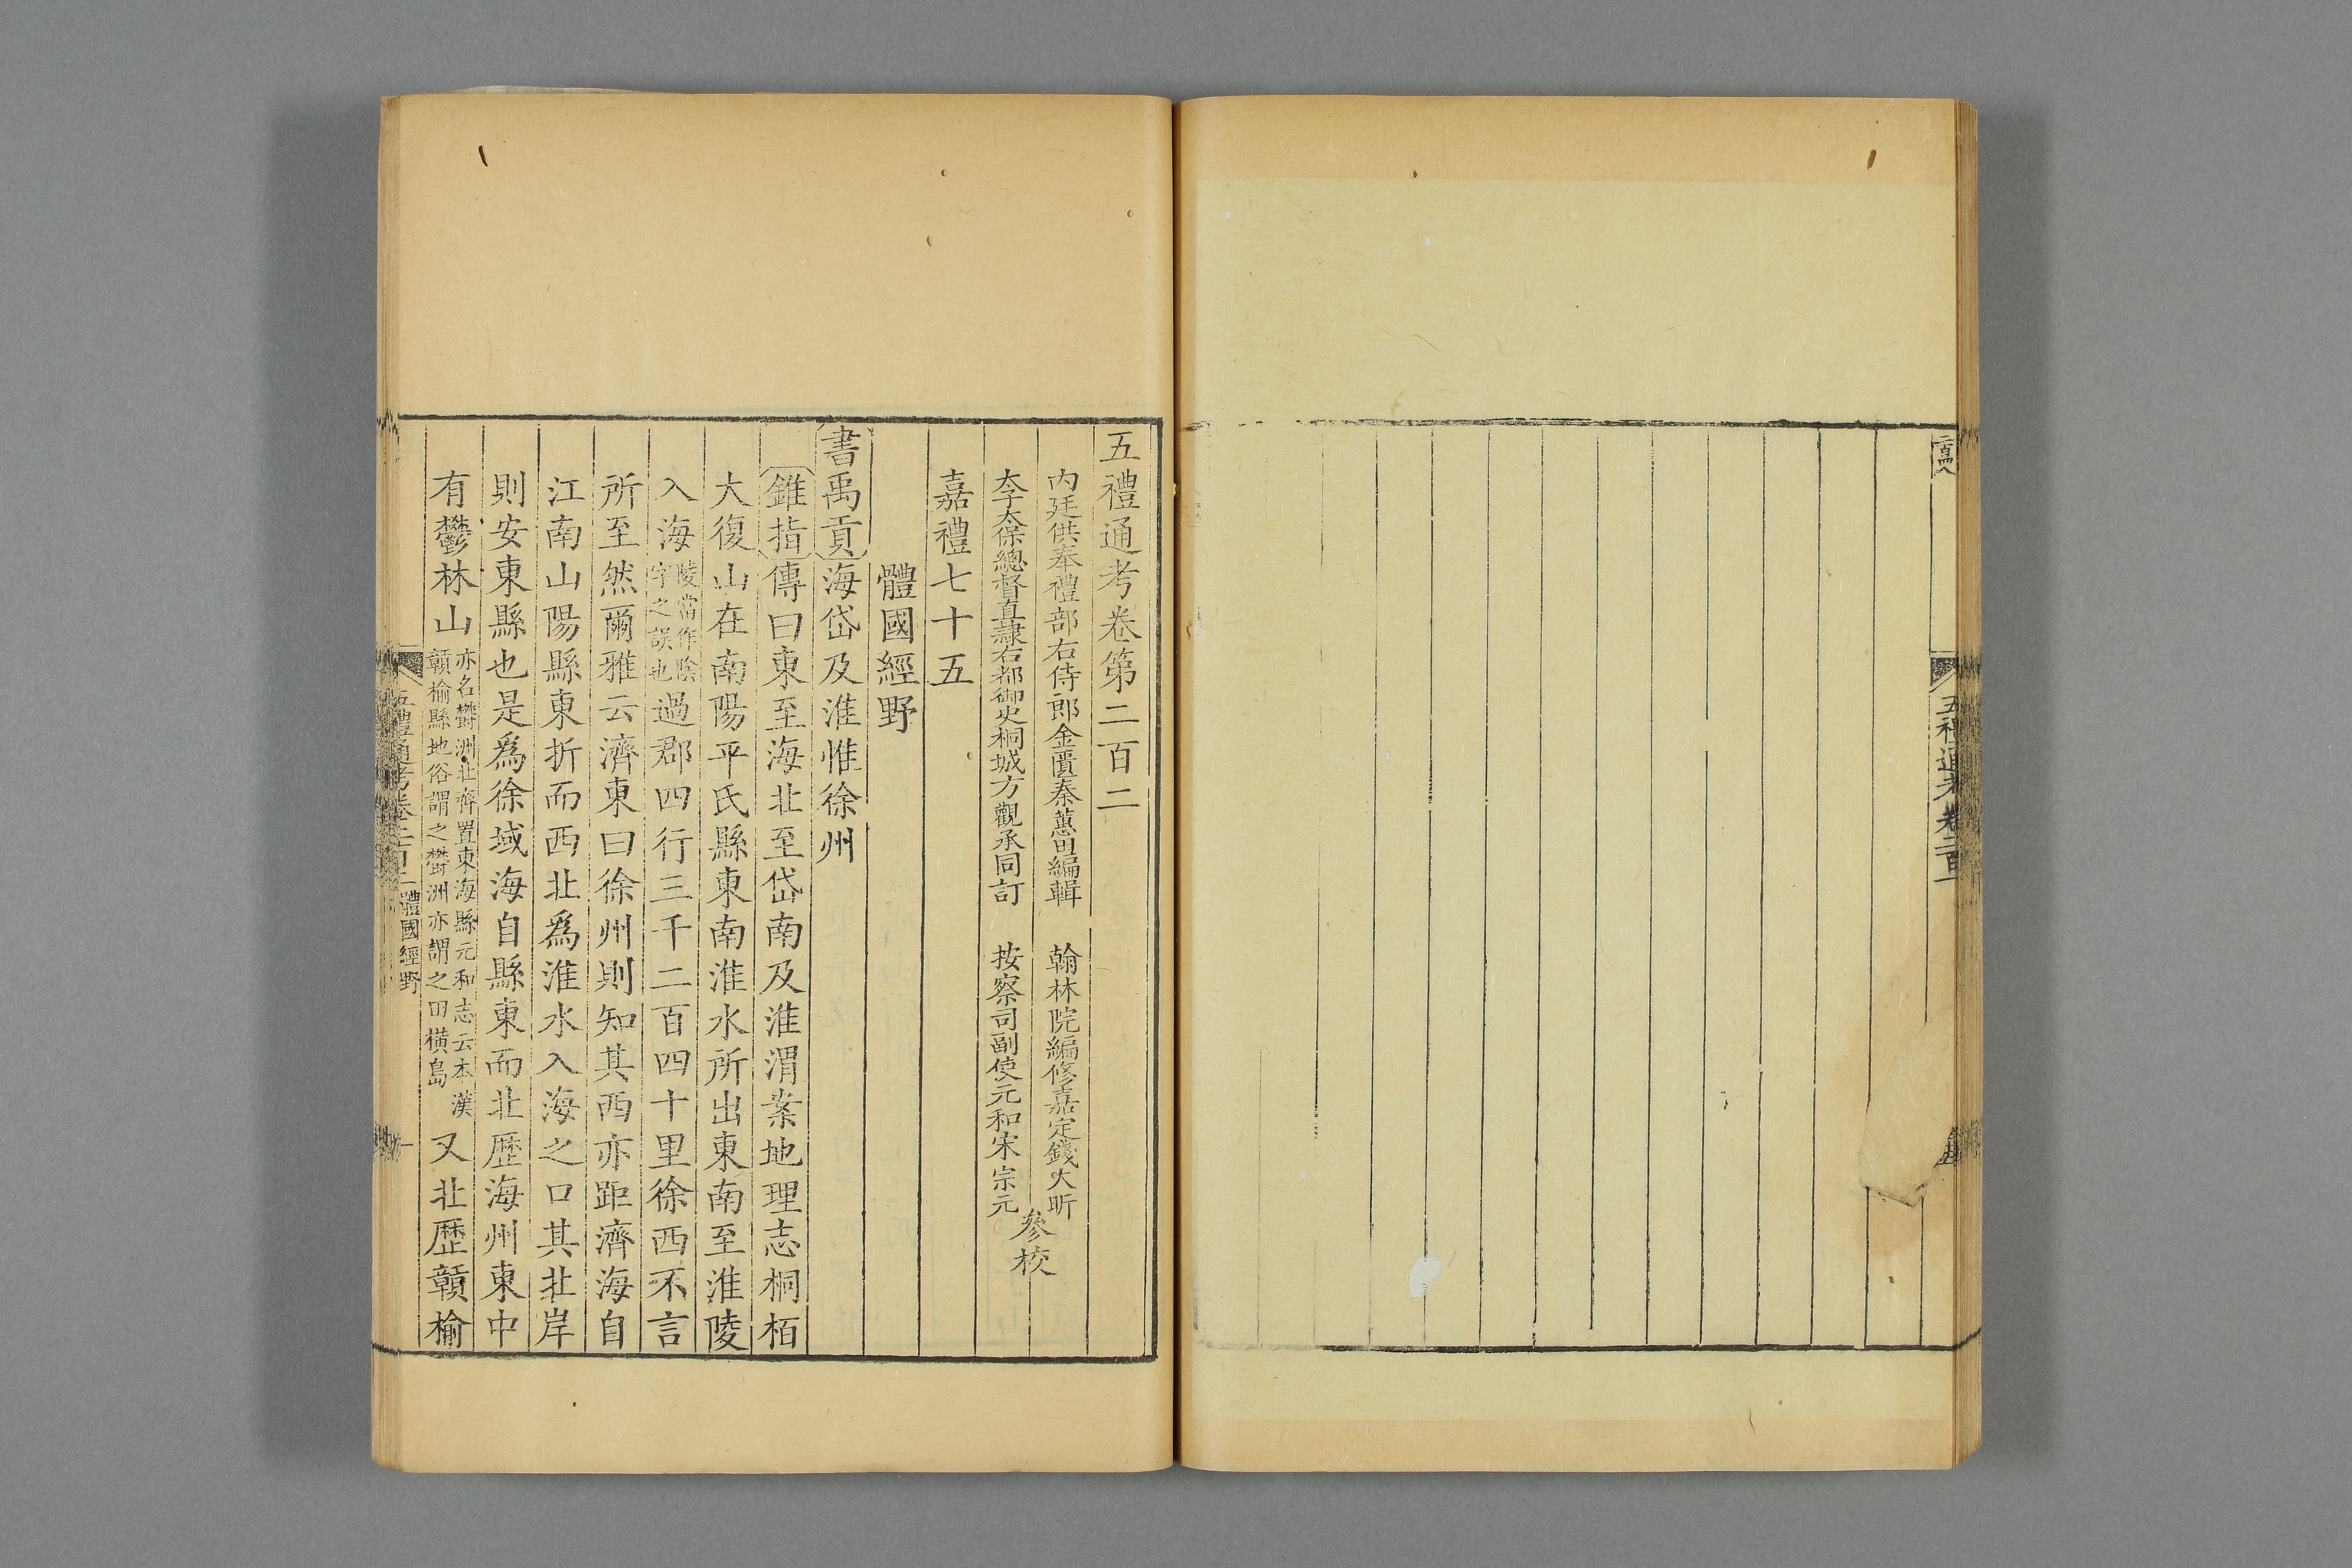 五禮通考卷二百一
五禮通考卷第二百二
內廷供奉禮部右侍郎金匱秦蕙田編輯　翰林院編修嘉定錢大昕
太子太保總督直隸右都御史桐城方觀承同訂　按察司副使元和宋宗元
參校
嘉禮七十五
體國經野
書禹貢海岱及淮惟徐州
錐指傳曰東至海北至岱南及淮渭案地理志桐栢
大復山在南陽平氏縣東南淮水所出東南至淮陵
入海陵當作陰字之誤也過郡四行三千二百四十里徐西不言
所至然爾雅云濟東曰徐州則知其西亦距濟海自
江南山陽縣東折而西北爲淮水入海之口其北岸
則安東縣也是爲徐域海自縣東而北歷海州東中
有鬱林山亦名鬱洲北齊置東海縣元和志云本漢贛榆縣地俗謂之鬱洲亦謂之田橫島又北歷贛榆
五禮通考卷二百二 體國經野
一